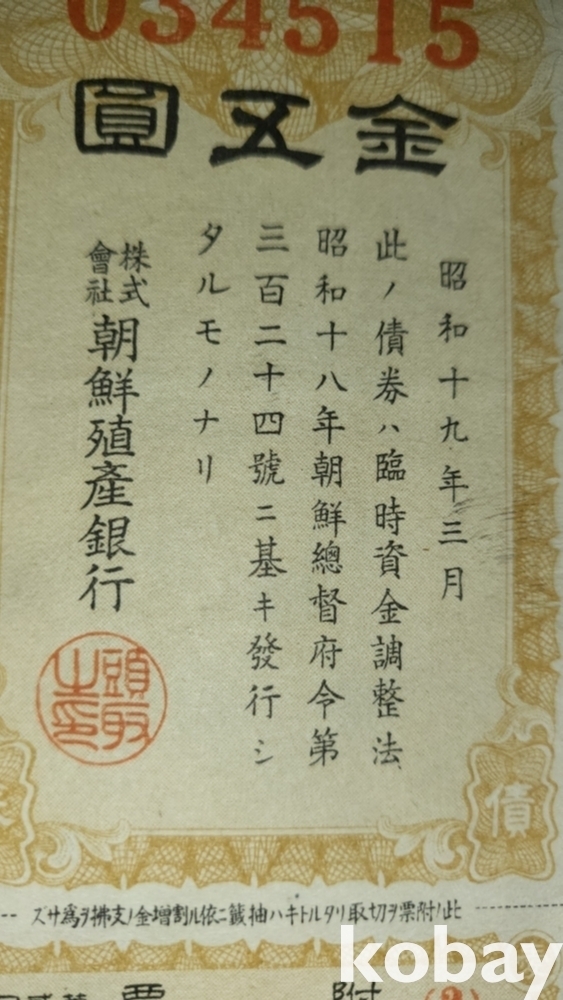 034515
金五圓
昭和十九年三月
此ノ債券ハ臨時資金調整法
昭和十八年朝鮮總督府令第
三百二十四號ニ基キ發行シ
タルモノナリ
株式會社朝鮮殖產銀行
頭取之印
債
此ノ附票ヲ切取リタルトキハ抽籤ニ依ル割增金ノ支拂ヲ爲サズ
附票
kobay